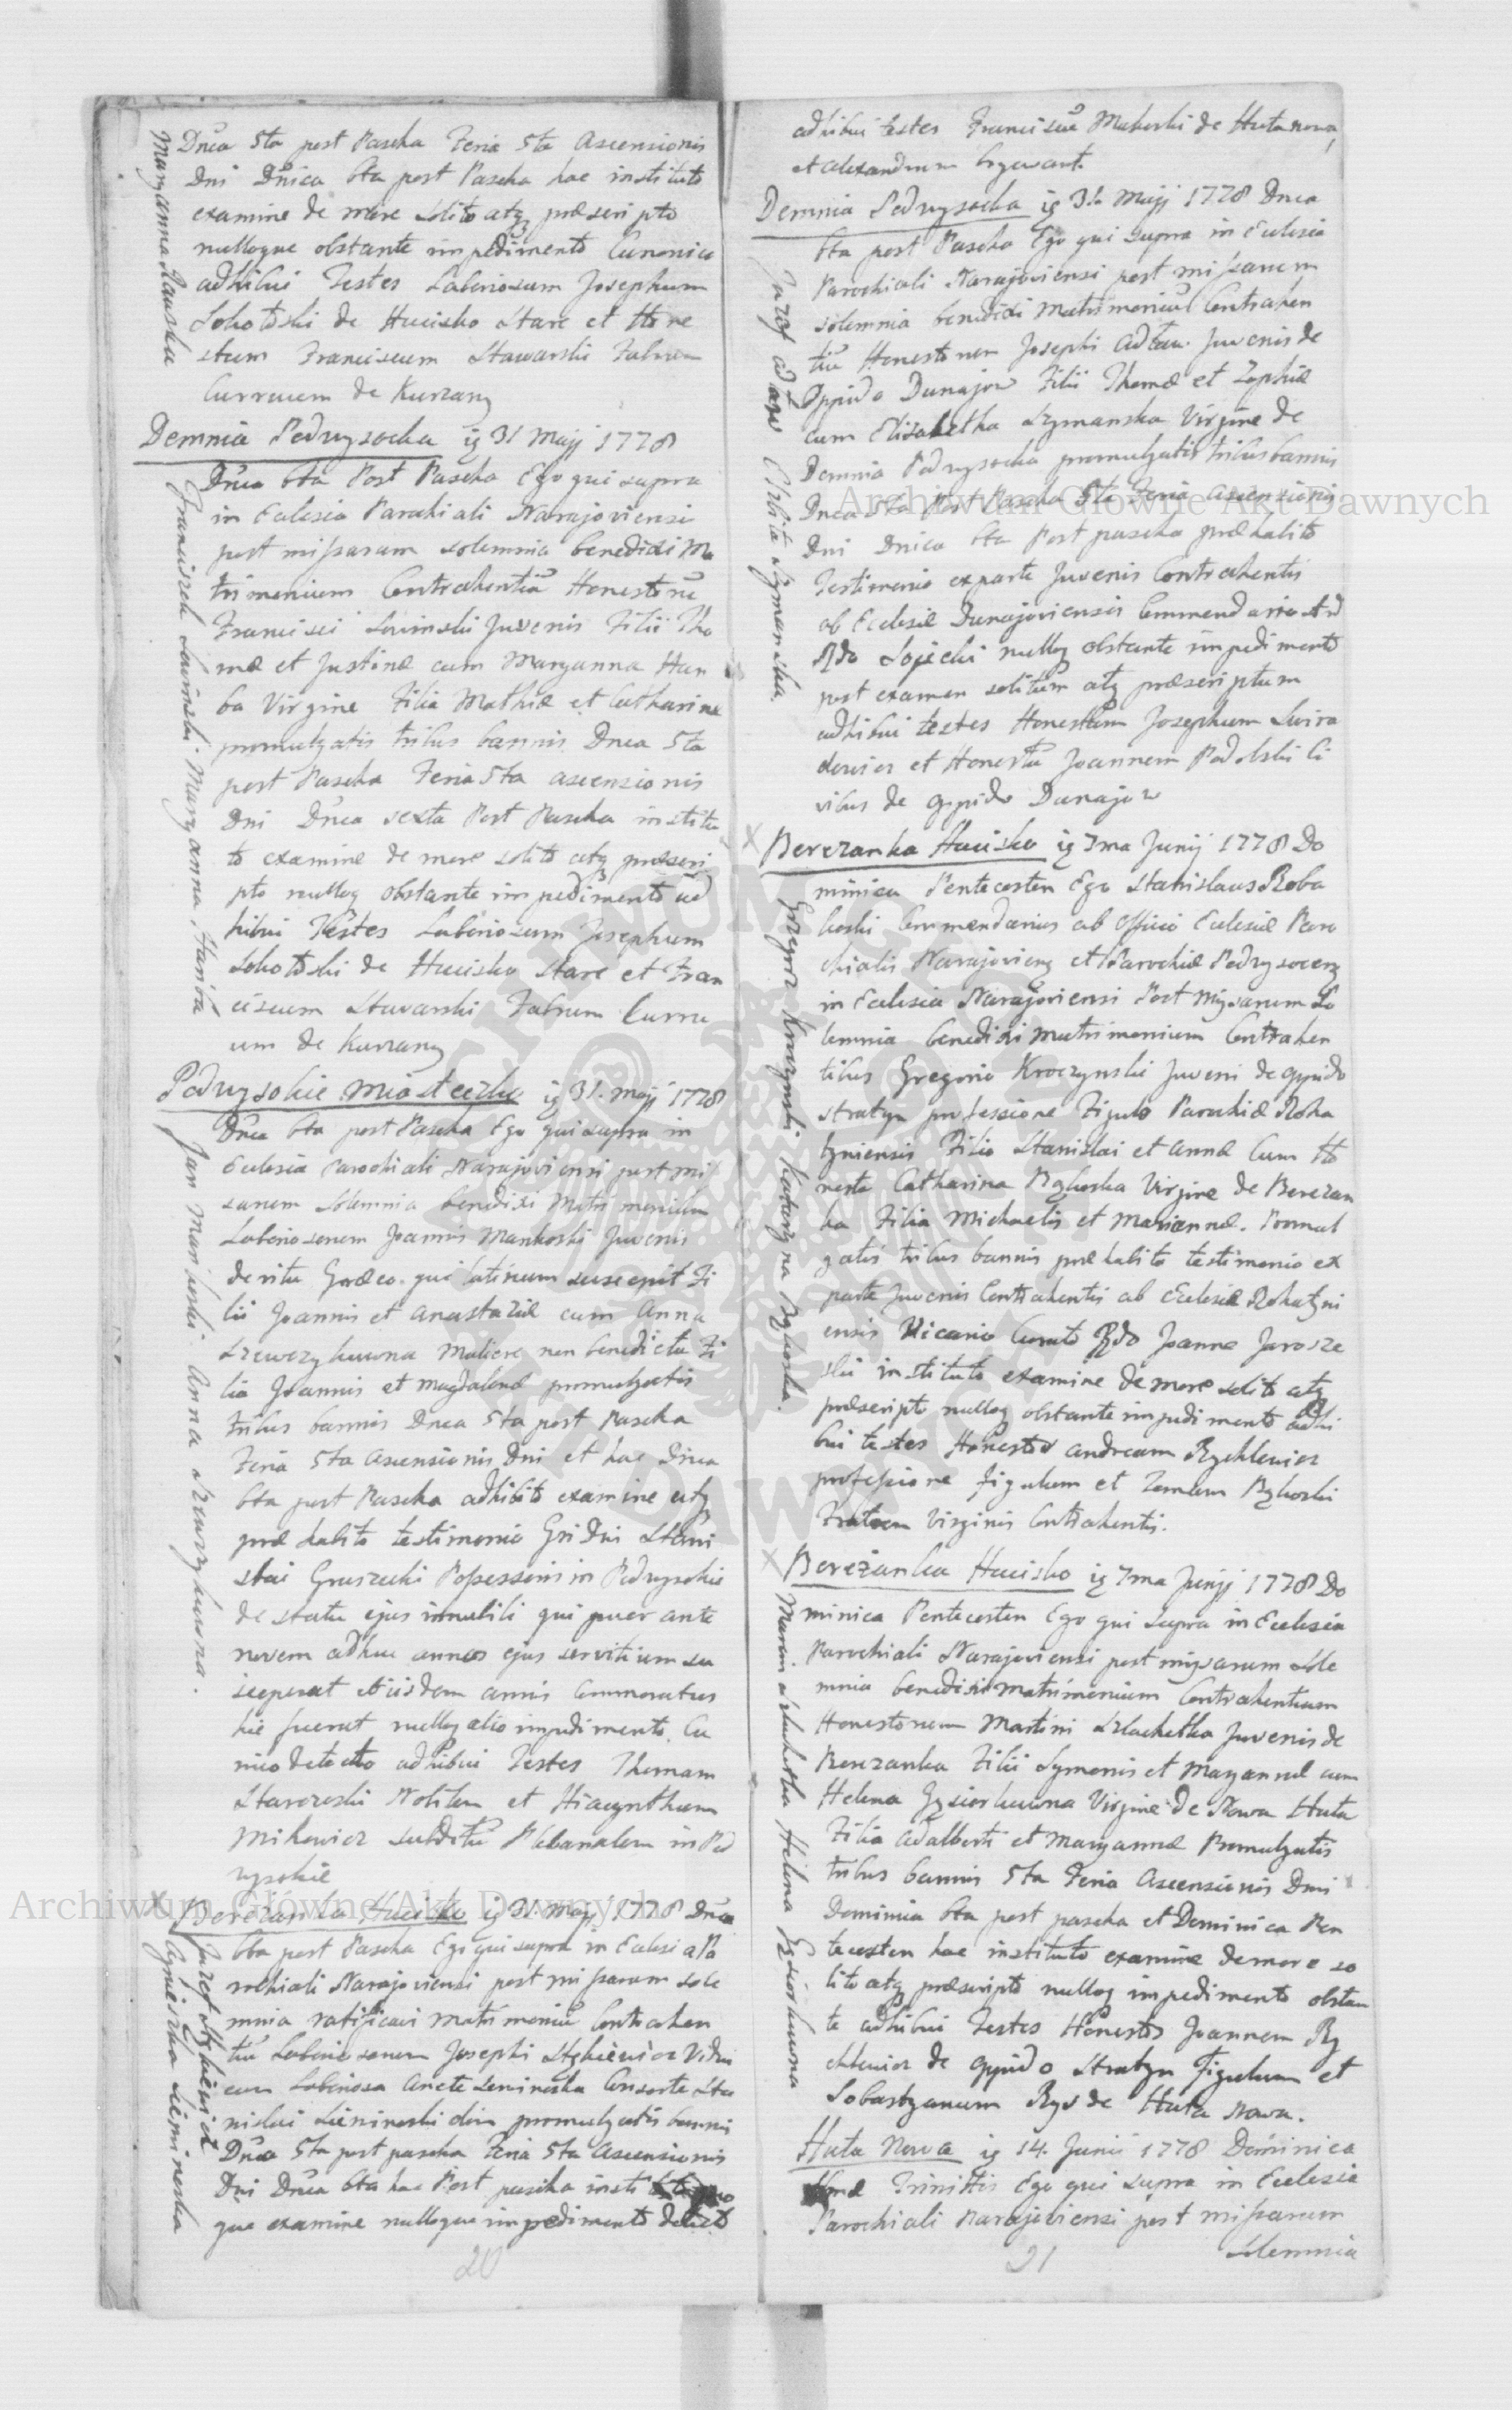 Dnca 5ta post Pascha Feria 5ta Ascensionis
Dni Dnica 6ta post Pascha hac instituto
examine de more solito atq praescripto
nulloque obstante impedimento Canonico
adhibui Testes Laboriosum Josephum
Sokolski de Hucisko Stare et Hone
stum Franciscum Stawarski Fabrum
Curruum de Kurzany
Maryanna
Demnia Podwysocka ig 31 Maji 1778
Dnca 6ta Post Pascha Ego qui supra
in Eclesia Parochiali Narajoviensi
post missarum solemnia benedixi Ma
trimonium Contrahentiu Honestoru
Francisci Lowinski Juvenis Filii Tho
mae et Justinae cum Maryanna Han
ba Virgine Filia Mathiae et Catharinae
promulgatis tribus bannis Dnca 5ta
post Pascha Feria 5ta ascensionis
Dni Dnca sexta Post Pascha institu
to examine de more solito atq praescri
pto nulloq obstante impedimento ad
hibui Testes Laboriosum Josephum
Sokolski de Hucisko Stare et Fran
ciscum Stawarski Fabrum Curru
um de Kurzany
Franciszek Lowinski. Maryanna Hanba
Podwysokie Miasteczko ig 31. Maji 1778
Dnca 6ta post Pascha Ego qui supra in
Eclesia Parochiali Narajoviensi post mis
sarum solemnia benedixi Matrimonium
Laboriosorum Joannis Mankoski Juvenis
de ritu Graeco qui latinum suscepit Fi
lii Joannis et Anastaziae cum Anna
Szewczykowna Muliere non benedicta Fi
lia Joannis et Magdalenae promulgatis
tribus bannis Dnca 5ta post Pascha
Feria 5ta Ascensionis Dni et hac Dnca
6ta post Pascha adhibito examine atq
prae habito testimonio Gsi Dni Stani
slai Gruszecki Possessoris in Podwysokie
de statu ejus innubili qui puer ante
novem adhuc annos ejus servitium su
sceperat et iisdem annis commoratus
hic fuerat nulloq alio impedimento Ca
nico detecto adhibui Testes Thomam
Starczeski Nobilem et Hiacynthum
Mikowicz subditu Plebanalem in Pod
wysokie
Jan Mankoski Anna Szewczykowna.
Berezanka Hucisko ig 31. Maji 1778 Dnca
6ta post Pascha Ego qui supra in Eclesia Pa
rochiali Narajoviensi post missarum sole
mnia ratificavi matrimoniu Contrahen
tiu Laboriosorum Josephi Vidui
cum Laboriosa Consorte Sta
nislai olim promulgatis bannis
Dnca 5ta post pascha Feria 5ta Ascensionis
Dni Dnca 6ta hac Post pascha insti
que examine nulloque impedimento detecto
Jozef
Agnieszka
20
adhibui testes Franciscu Makoski de Huta nowa,
et Alexandrum
Demnia Podwysocka ig 31. Maji 1778 Dnca
6ta post Pascha Ego qui supra in Eclesia
Parochiali Narajoviensi post missarum
solemnia benedixi Matrimoniu Contrahen
tiu Honestorum Josephi Adam Juvenis de
Oppido Dunajow Filii Thomae et Zophiae
cum Elisabetha Szymanska Virgine de
Demnia Podwysocka promulgatis tribus bannis
Dnca 5ta Post Pascha 5ta Feria Ascensionis
Dni Dnica 6ta Post pascha praehabito
Testimonio ex parte Juvenis Contrahentis
ab Eclesiae Dunajoviensis Commendario Ad
Rdo Sojecki nulloq obstante impedimento
post examen solitum atq praescriptum
adhibui testes Honestum Josephum Swira
dowicz et Honestu Joannem Podolski Ci
vibus de oppido Dunajow
Jozef Adam Elzbieta Szymanska.
Berezanka Hucisko ig 7ma Junij 1778 Do
minica Pentecosten Ego Stanislaus Roba
koski Commendarius ab Officio Eclesiae Paro
chialis Narajoviens et Parochiae Podwysocens
in Eclesia Narajoviensi Post Missarum So
lemnia benedixi Matrimonium Contrahen
tibus Gregorio Kroczynski Juveni de oppido
Stratyn professione Figulo Parochiae Roha
tyniensis Filio Stanislai et Annae Cum Ho
nesta Catharina Rykoska Virgine de Berezan
ka Filia Michaelis et Mariannae. Promul
gatis tribus bannis prae habito testimonio ex
parte Juvenis Contrahentis ab Eclesiae Rohatyni
ensis Vicario Curato Rdo Joanne Jarosze
ski instituto examine de more solito atq
praescripto nulloq obstante impedimento adhi
bui testes Honestos Andream Rychlewicz
professione Figulum et Rykoski
Fratrem Virginis Contrahentis.
Grzegorz Kroczynski. Katarzyna Rykoska.
Berezanka Hucisko ig 7ma Junij 1778 Do
minica Pentecosten Ego qui supra in Eclesia
Parochiali Narajoviensi post missarum Sole
mnia benedixi Matrimonium Contrahentium
Honestorum Martini Szlachetka Juvenis de
Berezanka Filii Symonis et Maryannae cum
Helena Gasiorkuwna Virgine de Nowa Huta
Filia Adalberti et Maryannae Promulgatis
tribus bannis 5ta Feria Ascensionis Dni
Dominica 6ta post pascha et Dominica Pen
tecosten hac instituto examine de more so
lito atq praescripto nulloq impedimento obstan
te adhibui Testes Honestos Joannem Ry
chlewicz de oppido Stratyn Figulum et
Sobastyanum Rys de Huta Nowa.
Marcin Szlachetka Helena Gasiorkuwna
Huta Nowa ig 14. Junii 1778 Dominica
Trinittis Ego qui supra in Eclesia
Parochiali Narajoviensi post missarum
solemnia
21
Archiwum Główne Akt Dawnych
Archiwum Główne Akt Dawnych